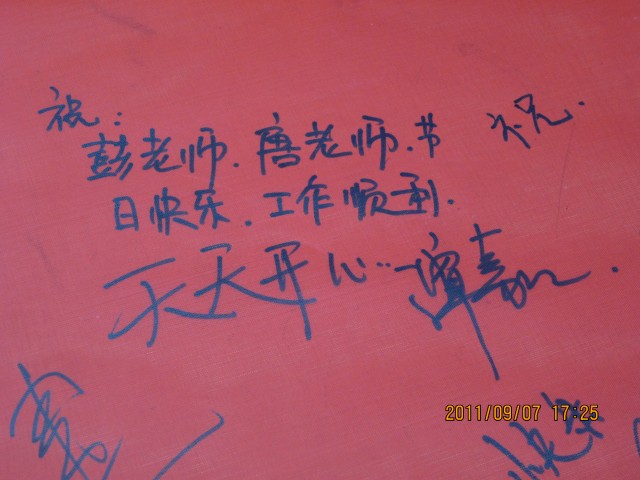 祝：
彭老师．唐老师．节
日快乐．工作顺利．
天天开心…谭嘉
2011/09/07 17:25
快乐